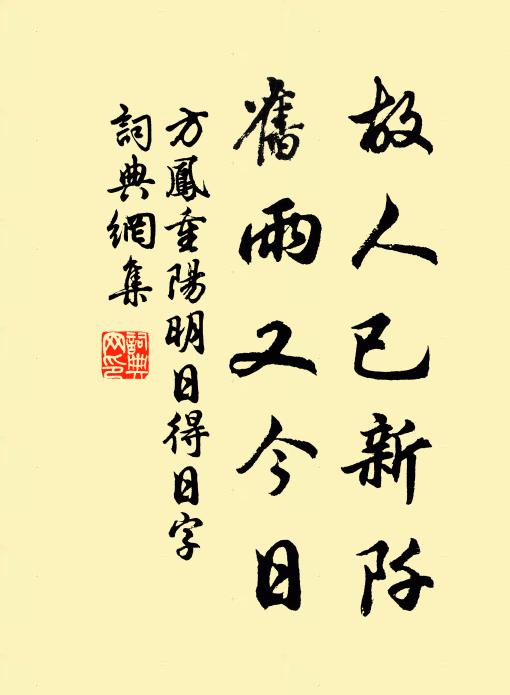 故人已新阡
舊雨又今日
方鳳重陽明日得日字
詞典網集
詞典網印